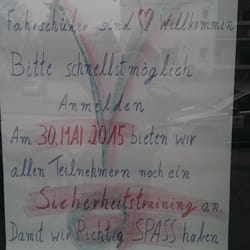 Fahrschüler sind ♡ Willkommen
Bitte schnellstmöglich
Anmelden
Am 30. MAI 2015 bieten wir
allen Teilnehmern noch ein
Sicherheitstraining an.
Damit wir Richtig SPASS haben